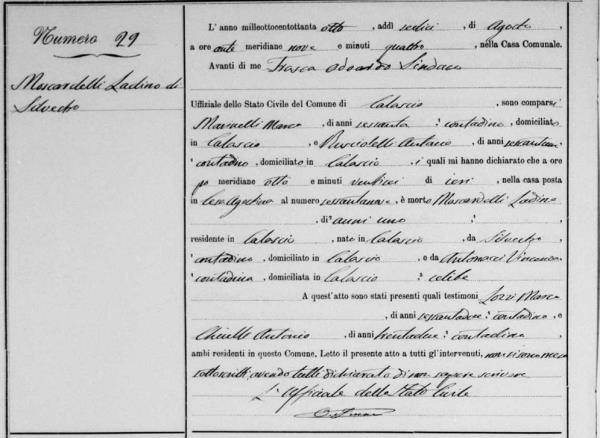 Numero 29
Moscardelli Ladino di
Silvestro
L'anno milleottocentottanta otto, addì sedici, di Agosto
a ore anti meridiane nove e minuti quattro, nella Casa Comunale.
Avanti di me Frasca Odoardo Sindaco
Uffiziale dello Stato Civile del Comune di Calascio, sono comparsi
Marinelli Marco, di anni sessanta, contadino, domiciliato
in Calascio, e Antonio, di anni
contadino, domiciliato in Calascio, i quali mi hanno dichiarato che a ore
po meridiane otto e minuti di ieri, nella casa posta
in al numero sessantanove, è morto Moscardelli Ladino
, di anni uno,
residente in Calascio, nato in Calascio, da Silvestro,
contadino, domiciliato in Calascio, e da Antonacci Vincenza
contadina, domiciliata in Calascio, celibe
A quest'atto sono stati presenti quali testimoni Marco
, di anni contadino, e
Antonio, di anni trentadue, contadino,
ambi residenti in questo Comune. Letto il presente atto a tutti gl'intervenuti, non si sono meco
sottoscritti, avendo tutti dichiarato di non sapere scrivere
L'Uffiziale dello Stato Civile